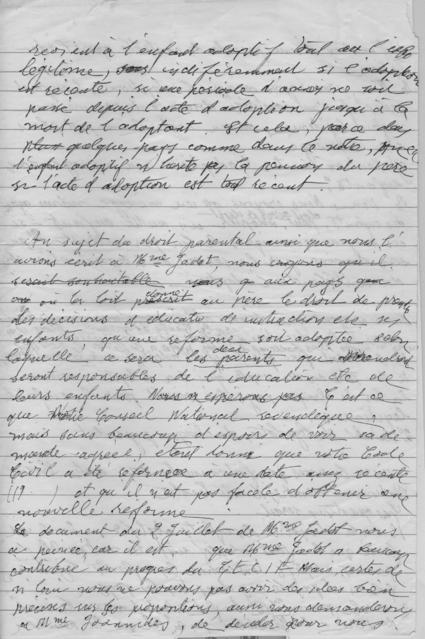 revient à l'enfant adoptif tout au
légitime, indiféremment si l'adoption
est récente, si une periode d'annez ne soit
passé depuis l'acte d'adoption jusqu'à la
mort de l'adoptant. Et cela, parce dans
plus quelques pays comme dans le notre,
l'enfant adoptif n' pas la pension du père
si l'acte d'adoption est tout récent.
Au sujet du droit parental ainsi que nous l'
avons écrit à Mme Jadot, nous croyons qu'il
serait souhaitable aux pays
où la loi donne au père le droit de
des décisions d'education de instruction etc
enfants, qu'une reforme soit adoptée selon
laquelle ce sera les deux parents qui
seront responsables de l'education etc de
leurs enfants. C'est ce
que Notre Conseil National revendique,
mais sans beaucoup d'espoirs de voir sa de
mande agréée, étant donné que notre Code
Civil a été reformée a une date assez recente
(19 ) et qu'il n'est pas facile d'obtenir une
nouvelle reforme.
Le document du 2 Juillet de Mme Jadot nous
a car il est, que Mme Jadot a
contribué au progres du Mais certes de
n nous ne pouvons pas avoir des idees bien
precises sur les propositions, aussi nous demanderons
a Mme Joannides, de decider pour nous.